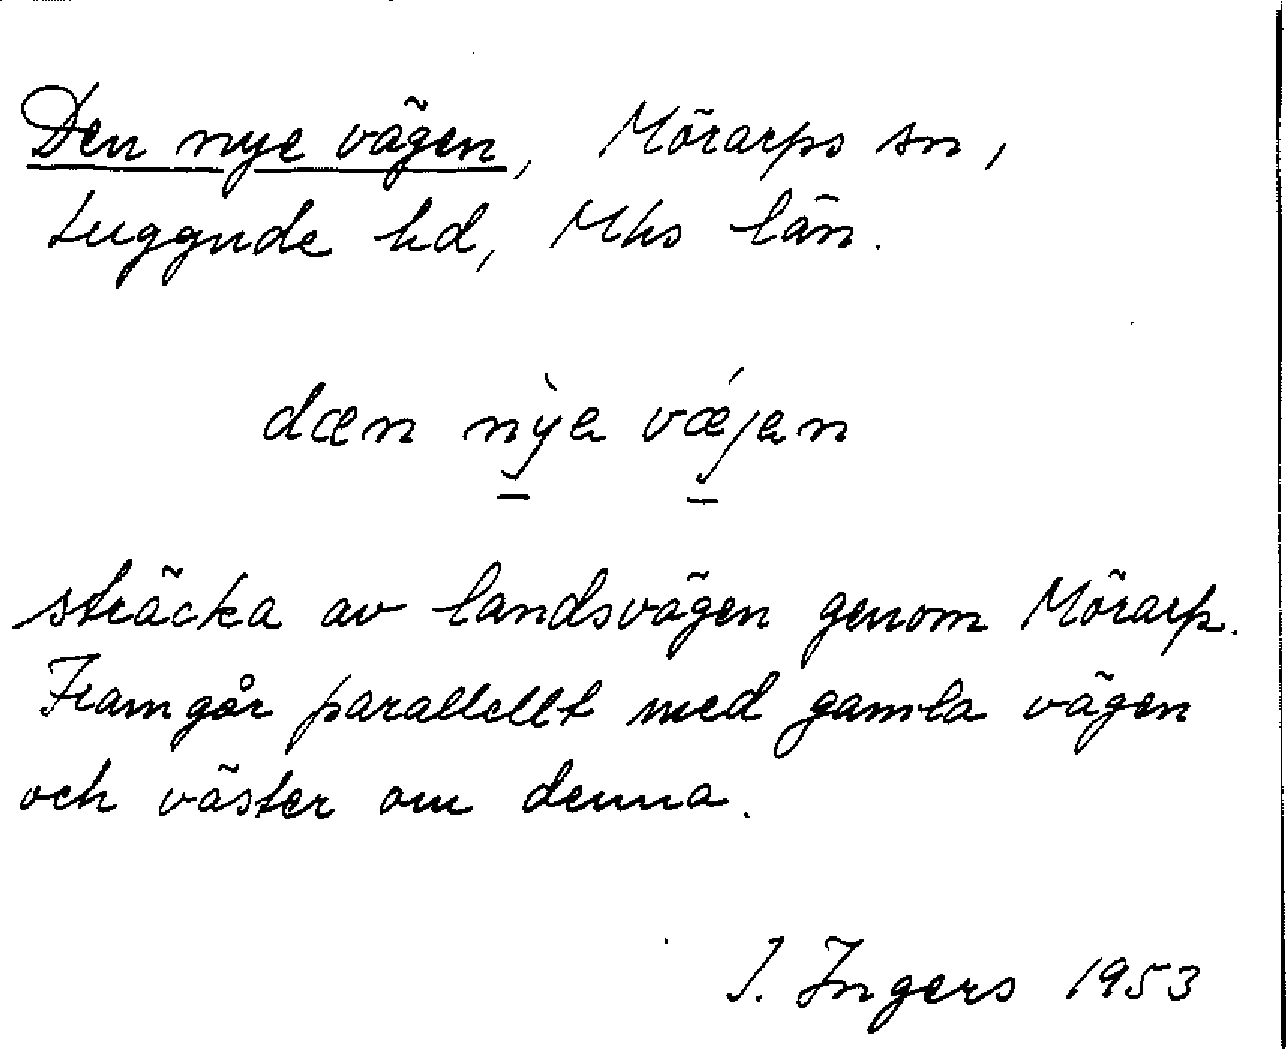 Den nye vägen, Mörarps sn,
Luggude hd, Mhs län.
dæn nỳe vǽjen
sträcka av landsvägen genom Mörarp.
Framgår parallellt med gamla vägen
och väster om denna.
I. Ingers 1953